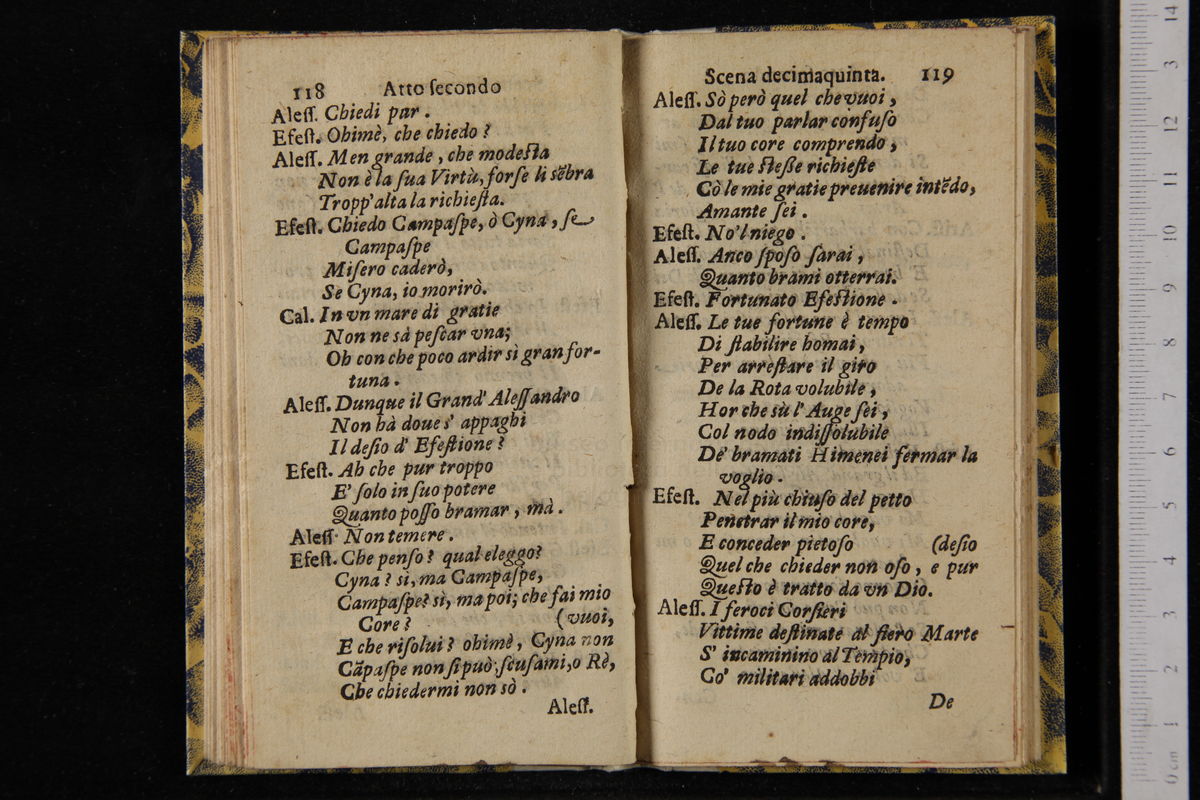 118 Atto ſecondo
Aleſſ. Chiedi pur.
Efeſt. Ohimè, che chiedo?
Aleſſ. Men grande, che modeſta
Non è la ſua Virtù, forſe li sẽbra
Tropp'alta la richieſta.
Efeſt. Chiedo Campaſpe, ò Cyna, ſe
Campaſpe
Miſero caderò,
Se Cyna, io morirò.
Cal. In vn mare di gratie
Non ne sà peſcar vna;
Oh con che poco ardir sì gran for-
tuna.
Aleſſ. Dunque il Grand' Aleſſandro
Non hà doue s' appaghi
Il deſio d' Efeſtione?
Efeſt. Ah che pur troppo
E' ſolo in ſuo potere
Quanto poſſo bramar, mà.
Aleſſ. Non temere.
Efeſt. Che penſo? qual eleggo?
Cyna? sì, ma Campaſpe,
Campaſpe? sì, ma poi; che fai mio
Core? (vuoi,
E che riſolui? ohimè, Cyna non
Cãpaſpe non ſi può; ſcuſami, o Rè,
Che chiedermi non sò.
Aleſſ.
Scena decimaquinta. 119
Aleſſ. Sò però quel che vuoi,
Dal tuo parlar confuſo
Il tuo core comprendo,
Le tue ſteſſe richieſte
Cò le mie gratie preuenire intẽdo,
Amante ſei.
Efeſt. No'l niego.
Aleſſ. Anco ſpoſo ſarai,
Quanto brami otterrai.
Efeſt. Fortunato Efeſtione.
Aleſſ. Le tue fortune è tempo
Di ſtabilire homai,
Per arreſtare il giro
De la Rota volubile,
Hor che sù l' Auge ſei,
Col nodo indiſſolubile
De' bramati Himenei fermar la
voglio.
Efeſt. Nel più chiuſo del petto
Penetrar il mio core,
E conceder pietoſo (deſio
Quel che chieder non oſo, e pur
Queſto è tratto da vn Dio.
Aleſſ. I feroci Corſieri
Vittime deſtinate al fiero Marte
S' incaminino al Tempio,
Co' militari addobbi
De